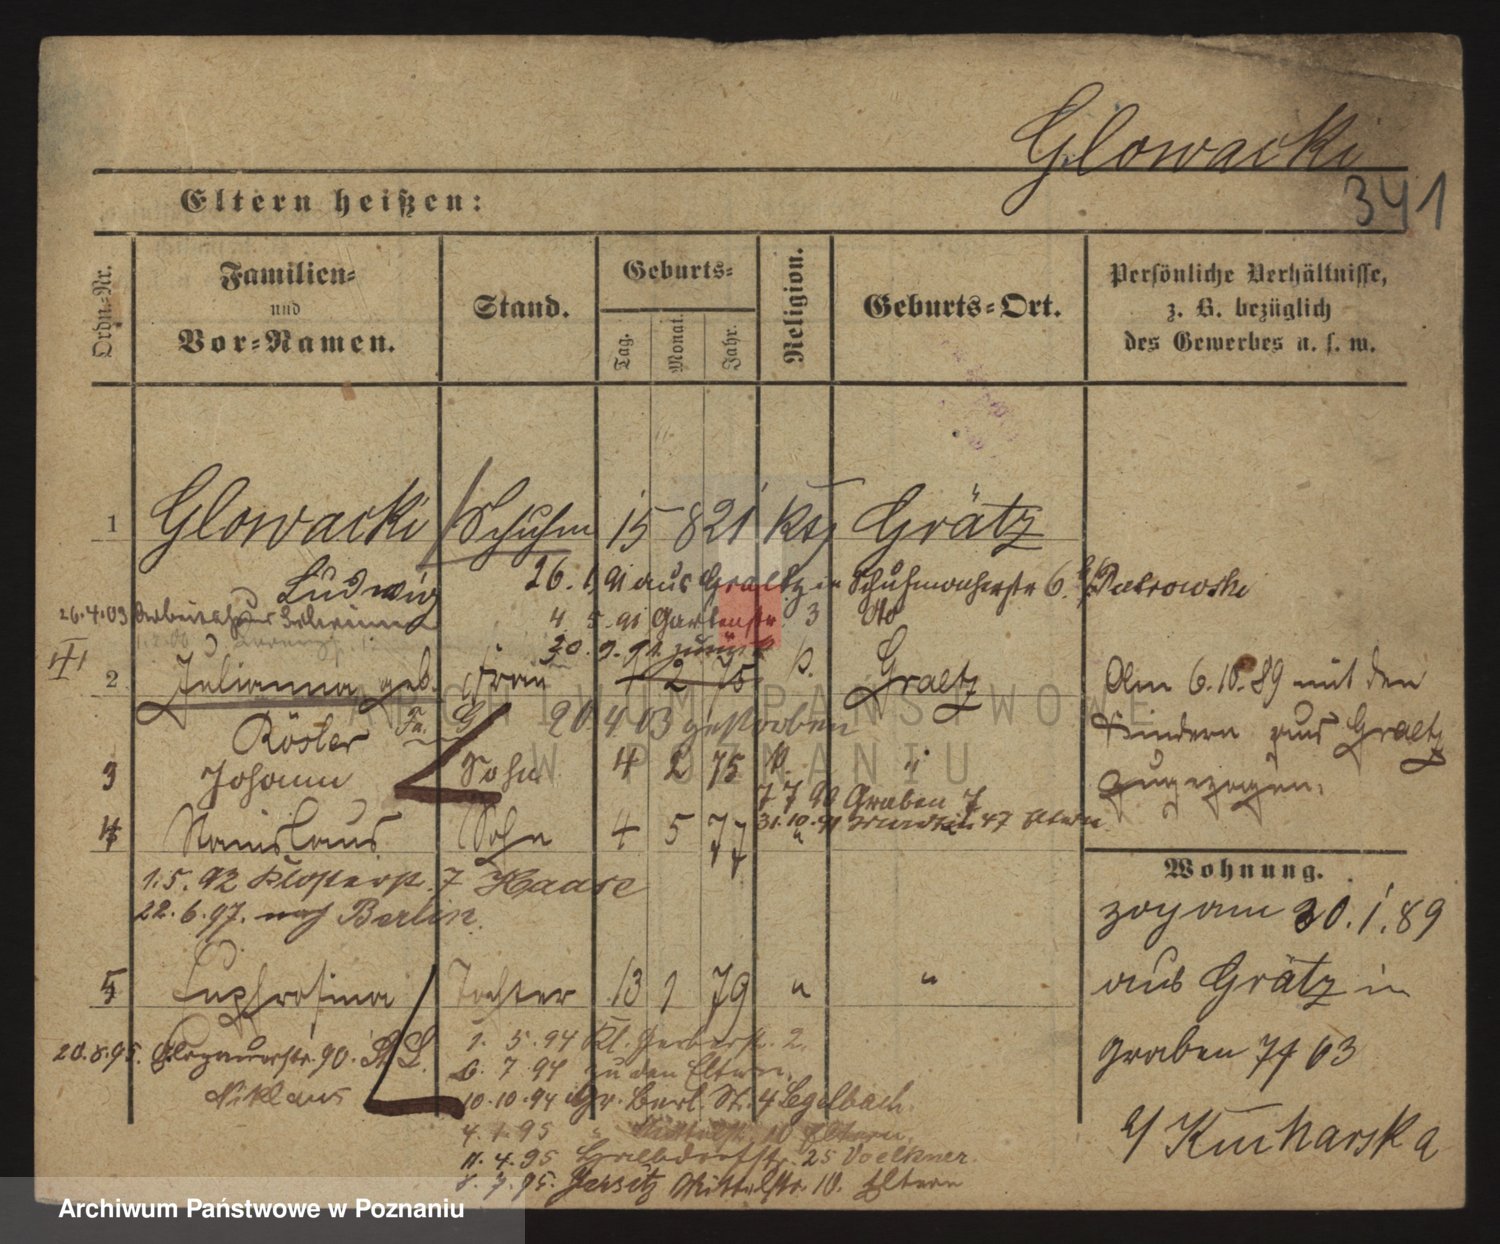 Glowacki
341
Eltern heißen:
Ordn.-Nr.
Familien-
und
Vor-Namen.
Stand.
Geburts-
Tag.
Monat.
Jahr.
Religion.
Geburts-Ort.
Persönliche Verhältnisse,
z. B. bezüglich
des Gewerbes u. s. w.
1 Glowacki Schuhm 15 8 21 kth Grätz
Ludwig
26. 1. 91 aus Graetz in Schuhmacherstr 6. b/ Putrowski
26.4.03
4. 5. 91 Gartenstr. 3 Ito
30. 9. 91 zurück
2 Julianna geb. Frau 1 2 75 k. Graetz
Rösler
20. 4. 03 gestorben
3 Johann Sohn 4 2 75 k. "
7 7 90 Graben 7
4 Stanislaus Sohn 4 5 77 "
31. 10. 91 47 Eltern
1. 5. 92 Klosterstr. 7 Haase
22. 6. 97. nach Berlin.
5 Euphrosina Tochter 13 1 79 " "
1. 5. 94 Kl. Gerberstr. 2.
20.8.95. 90.
6. 7. 94 zu den Eltern.
Niklaus
10. 10. 94 Gr. Berl. St. 4 Legelbach.
4. 1. 95 " 10 Eltern.
11. 4. 95 25 Voelkner.
8. 7. 95. Jersitz Mittelstr. 10. Eltern
Am 6. 10. 89 mit den
Kindern aus Graetz
zugezogen.
Wohnung.
zog am 30. 1. 89
aus Grätz in
Graben 7
b/ Kucharska
ARCHIWUM PAŃSTWOWE
W POZNANIU
Archiwum Państwowe w Poznaniu